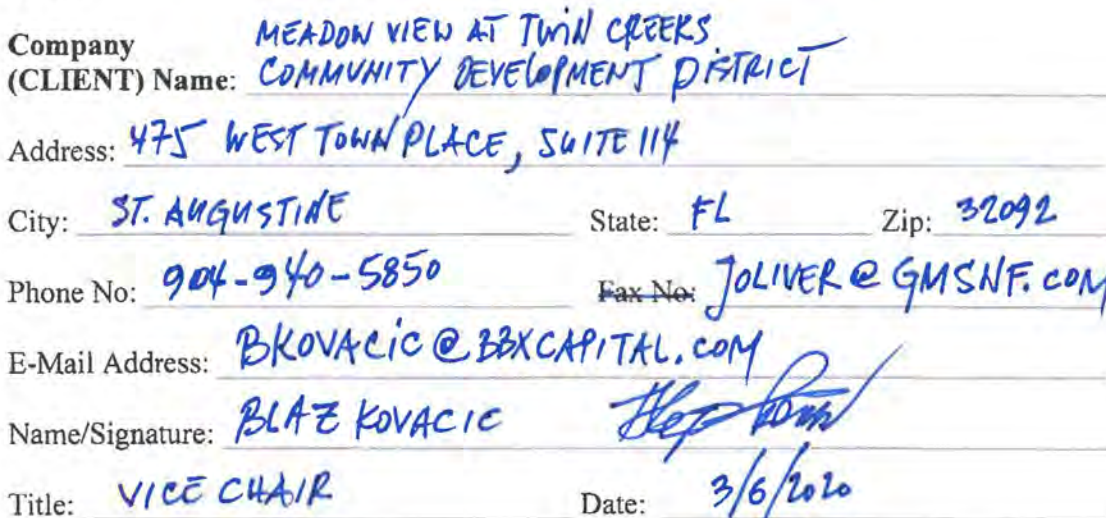 Company MEADOW VIEW AT TWIN CREEKS
(CLIENT) Name: COMMUNITY DEVELOPMENT DISTRICT
Address: 475 WEST TOWN PLACE, SUITE 114
City: ST. AUGUSTINE State: FL Zip: 32092
Phone No: 904-940-5850 Fax No: JOLIVER@GMSNF.COM
E-Mail Address: BKOVACIC@BBXCAPITAL.COM
Name/Signature: BLAZ KOVACIC
Title: VICE CHAIR Date: 3/6/2020